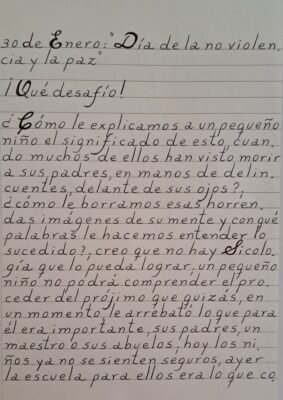 30 de Enero: "Día de la no violen.
cia y la paz"
¡Qué desafío!
¿Cómo le explicamos a un pequeño
niño el significado de esto, cuan.
do muchos de ellos han visto morir
a sus padres, en manos de delin.
cuentes, delante de sus ojos?,
¿cómo le borramos esas horren.
das imágenes de su mente y con qué
palabras le hacemos entender lo
sucedido?, creo que no hay Sicolo.
gía que lo pueda lograr, un pequeño
niño no podrá comprender el pro.
ceder del prójimo que quizás, en
un momento, le arrebató lo que para
él era importante, sus padres, un
maestro o sus abuelos, hoy los ni.
ños ya no se sienten seguros, ayer
la escuela para ellos era lo que co.